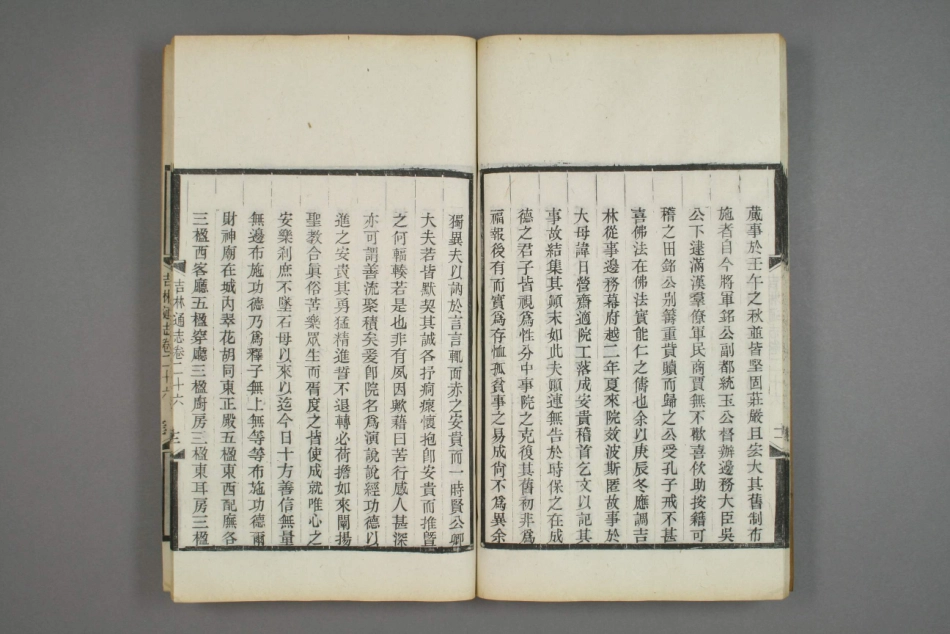 蕆事於壬午之秋並皆堅固莊嚴且宏大其舊制布
施者自今將軍銘公副都統玉公督辦邊務大臣吳
公下逮滿漢羣僚軍民商賈無不歡喜佽助按籍可
稽之田銘公別籌重貲贖而歸之公受孔子戒不甚
喜佛法在佛法實能仁之儔也余以庚辰冬應調吉
林從事邊務幕府越二年夏來院效波斯匿故事於
大母諱日營齋適院工落成安貴稽首乞文以記其
事故結集其顚末如此夫顚連無告於時保之在成
德之君子皆視爲性分中事院之克復其舊初非爲
福報後有而實爲存恤孤貧事之易成尙不爲異余
獨異夫以訥於言言輒面赤之安貴而一時賢公卿
大夫若皆默契其誠各抒痌瘝懷抱卽安貴而推暨
之何輻輳若是也非有夙因歟藉曰苦行感人甚深
亦可謂善流聚積矣爰卽院名爲演說說經功德以
進之安貴其勇猛精進誓不退轉必荷擔如來闡揚
聖教合眞俗苦樂眾生而胥度之皆使成就唯心之
安樂刹庶不墜石母以來以迄今日十方善信無量
無邊布施功德乃爲釋子無上無等等布施功德爾
財神廟在城內翠花胡同東正殿五楹東西配廡各
三楹西客廳五楹穿廳三楹廚房三楹東耳房三楹
吉林通志卷二十六